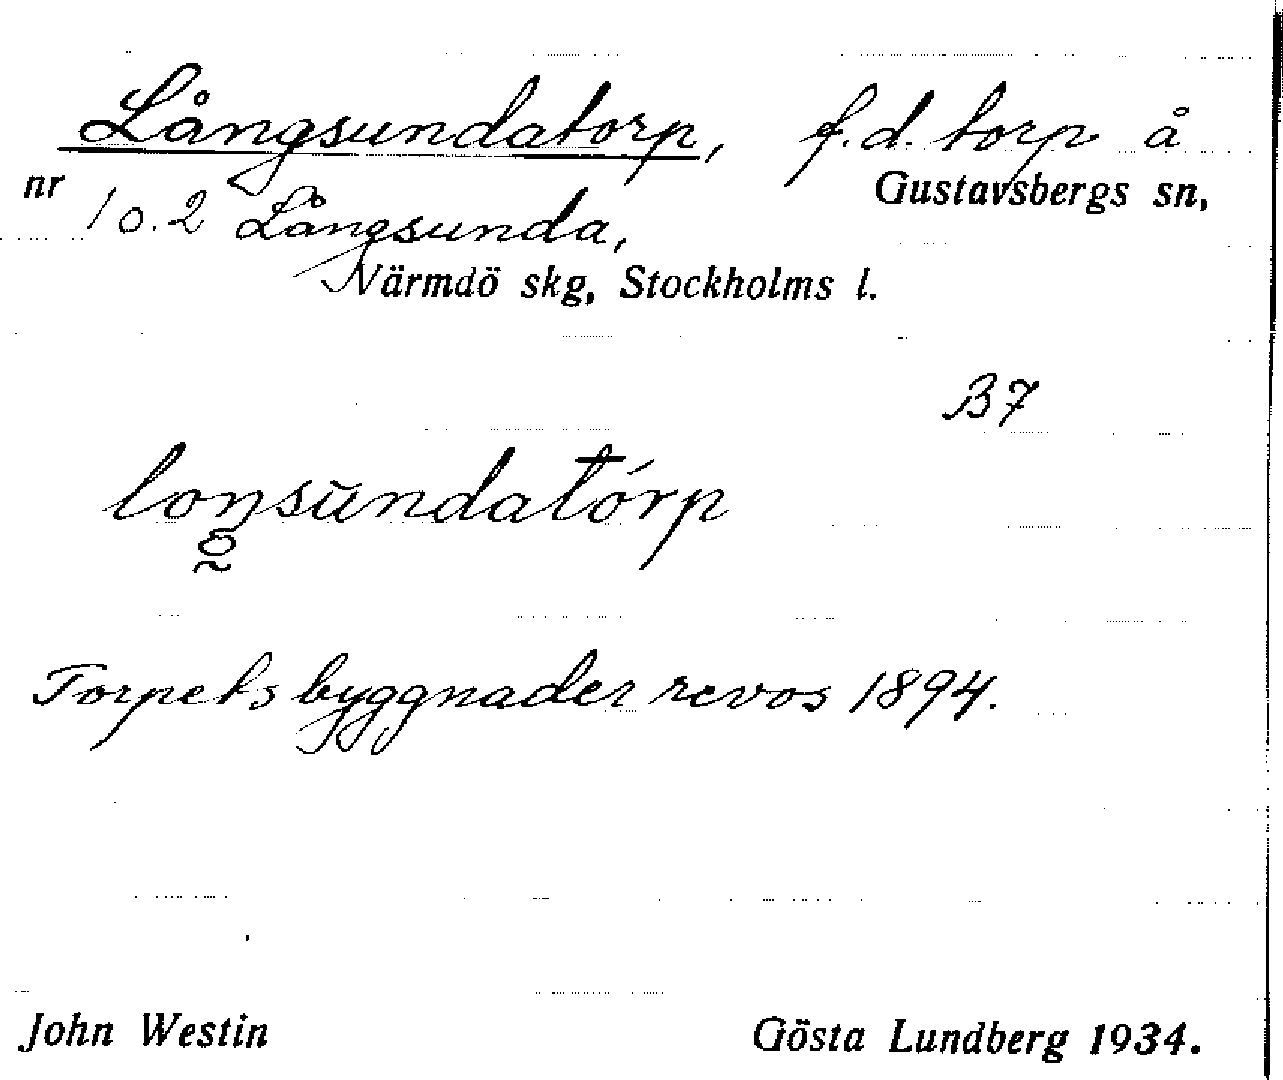 Långsundatorp, f.d. torp å
nr 1 o. 2 Långsunda, Gustavsbergs sn,
Värmdö skg, Stockholms l.
B7
loŋsūndatórp
Torpets byggnader revos 1894.
John Westin Gösta Lundberg 1934.